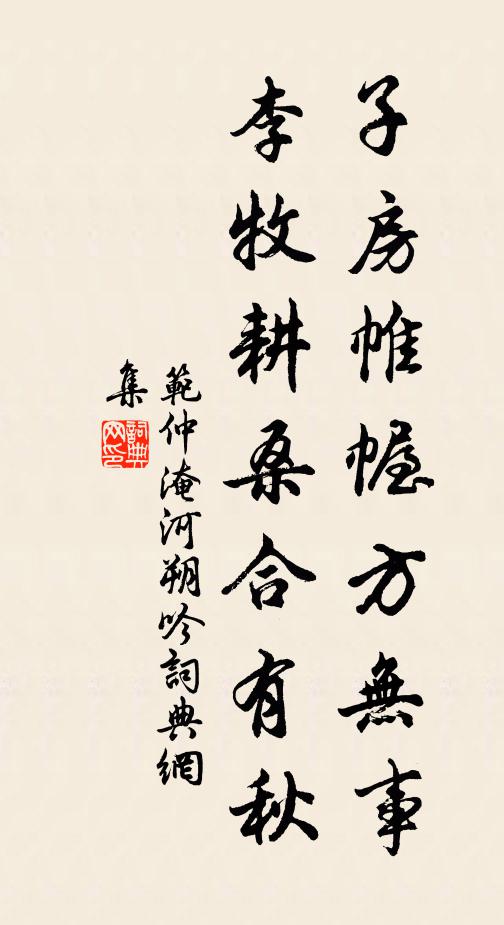 子房帷幄方無事
李牧耕桑合有秋
範仲淹河朔吟詞典網
集
詞典
网印